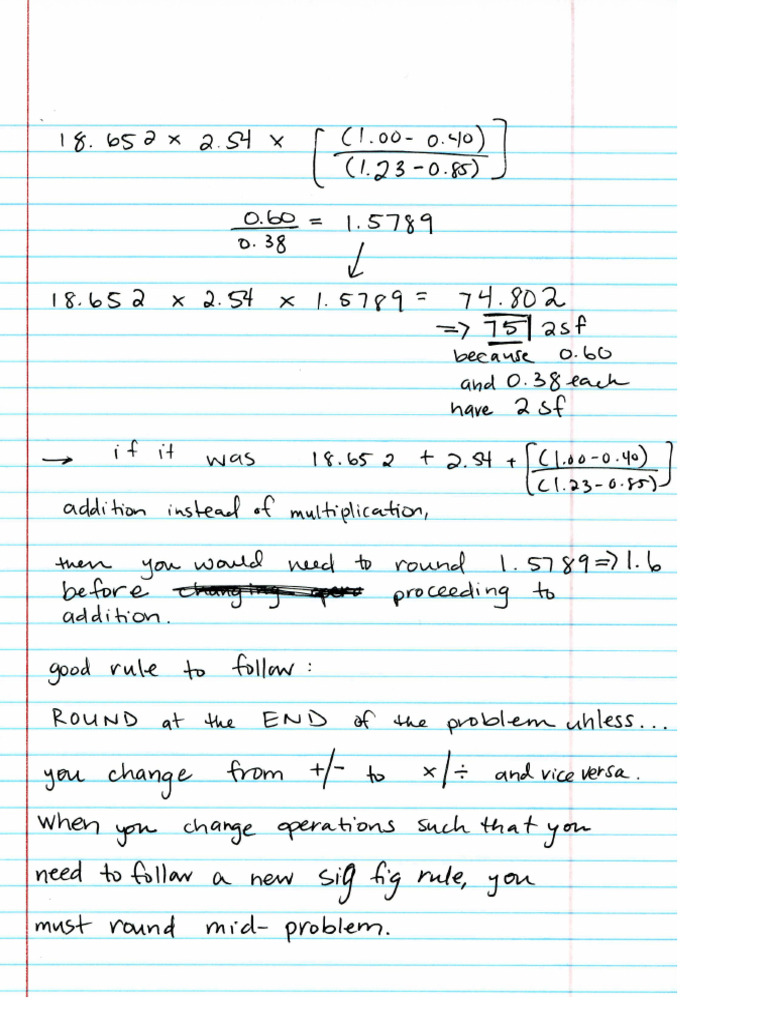 18.652 × 2.54 × [ (1.00 - 0.40) / (1.23 - 0.85) ]
0.60 / 0.38 = 1.5789
↓
18.652 × 2.54 × 1.5789 = 74.802
=> 75 2sf
because 0.60
and 0.38 each
have 2 sf
→ if it was 18.652 + 2.54 + [ (1.00 - 0.40) / (1.23 - 0.85) ]
addition instead of multiplication,
then you would need to round 1.5789 => 1.6
before changing opera proceeding to
addition.
good rule to follow:
ROUND at the END of the problem unless...
you change from +/- to ×/÷ and vice versa.
When you change operations such that you
need to follow a new sig fig rule, you
must round mid-problem.